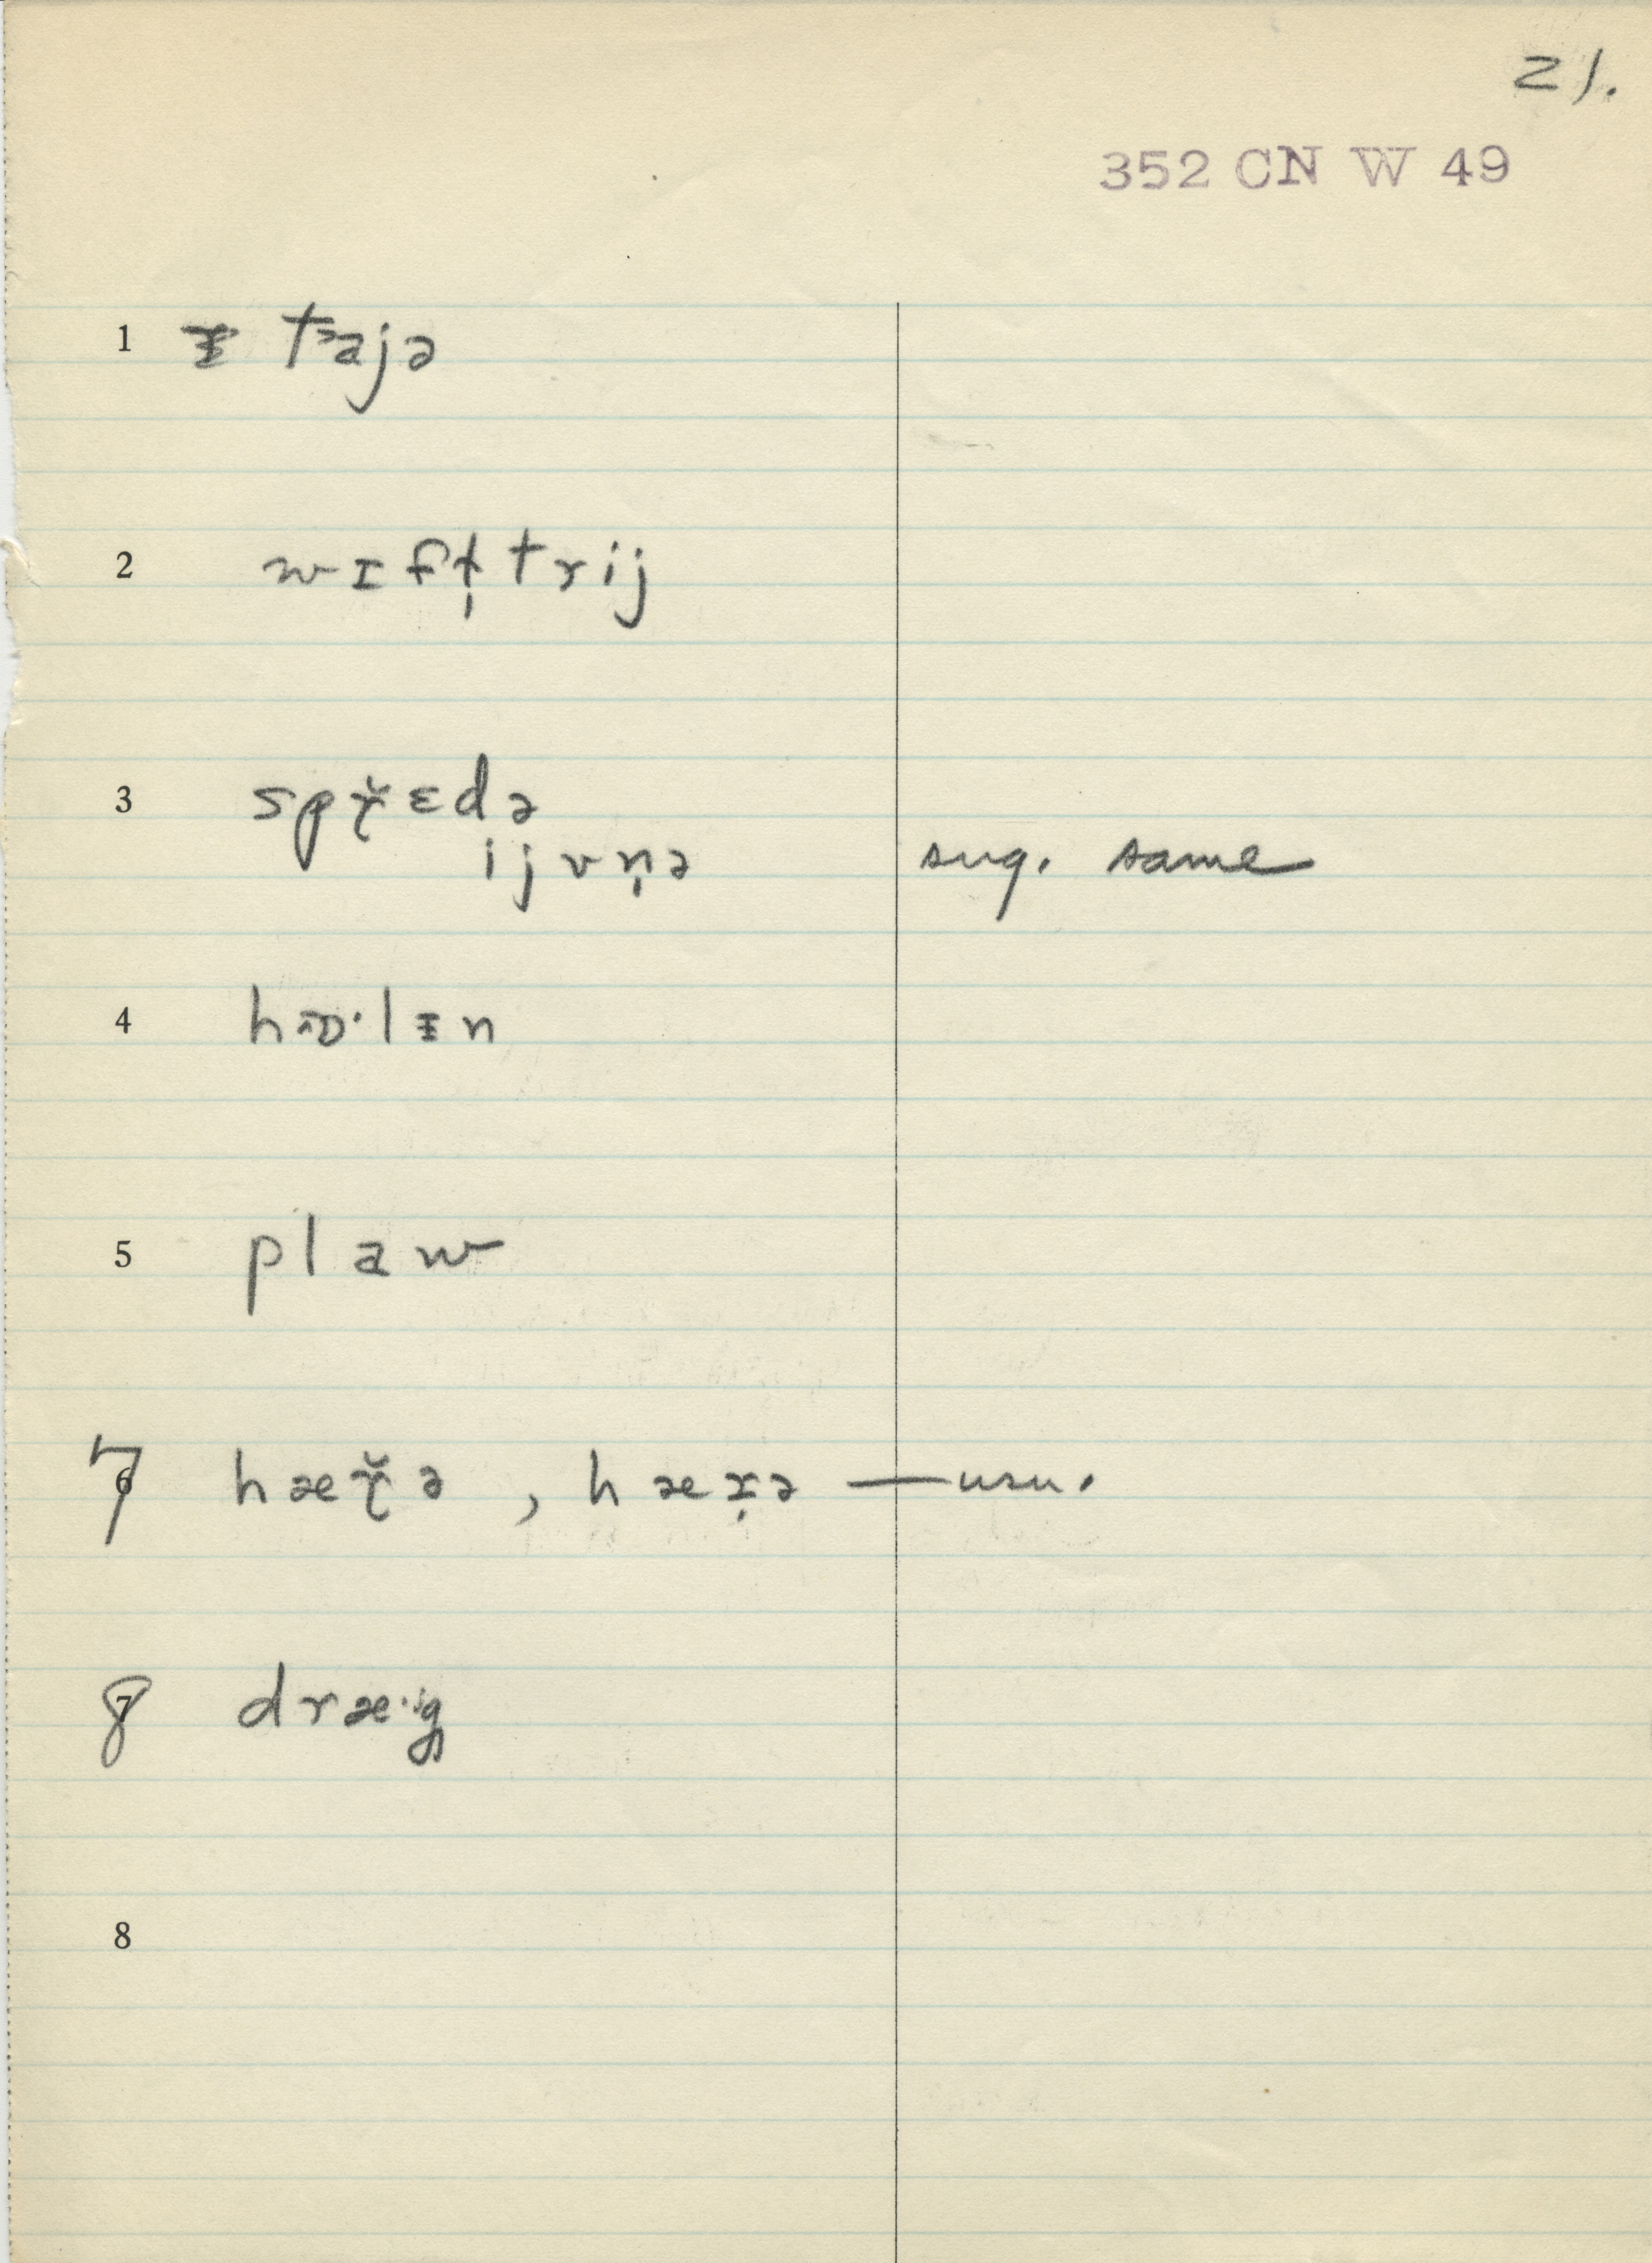 21.
352 CN W 49
1 ᵻ t˃ajə
2 wɪft̩trij
3 spɤ̆ɛdə
ijvn̩ə sug. same
4 hɒ·lᵻn
5 plaw
7 hæɤ̆ə , hæɪ̣ə — usu.
8 dræ·ᶦg
8